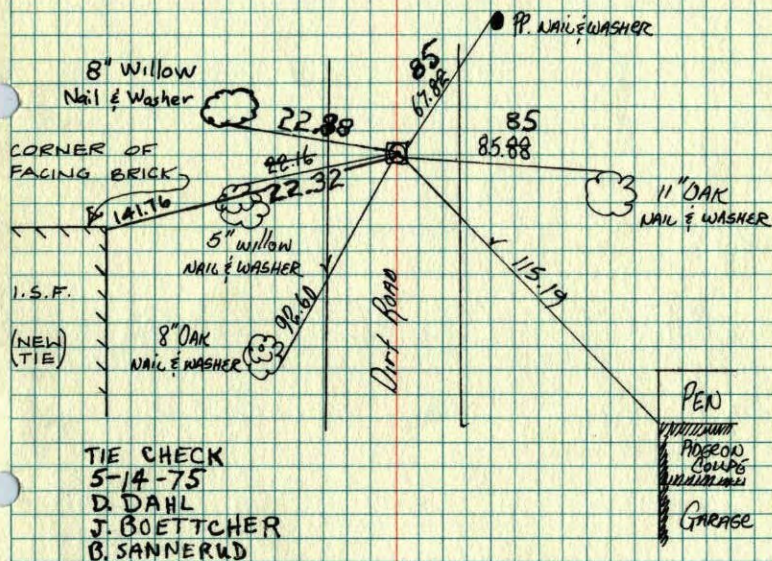 PP. NAIL & WASHER
8" Willow
Nail & Washer
85
67.88
22.88
85
85.88
CORNER OF
FACING BRICK
22.16
22.32
141.76
11" OAK
NAIL & WASHER
5" willow
NAIL & WASHER
115.19
I.S.F.
(NEW
TIE)
8" OAK
NAIL & WASHER
98.60
Dirt ROAD
PEN
GARAGE
TIE CHECK
5-14-75
D. DAHL
J. BOETTCHER
B. SANNERUD